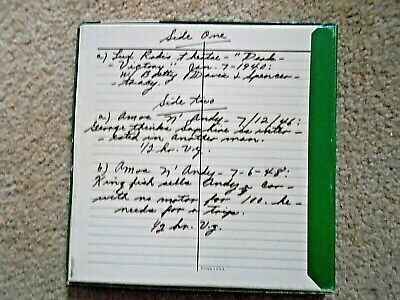 Side One
a) Lux Radio Theatre - "Dark -
- Victory" Jan. - 7 - 1940:
W/ Betty Davis & Spencer -
- Tracy.
Side Two
a) Amos N' Andy - 7/12/46:
George thinks Sapphire is inter -
- ested in another man.
1/2 hr. V.g.
b) Amos N' Andy - 7-6-48:
King fish sells Andy a car -
with no motor for 100. he -
needs for a trip.
1/2 hr. V.g.